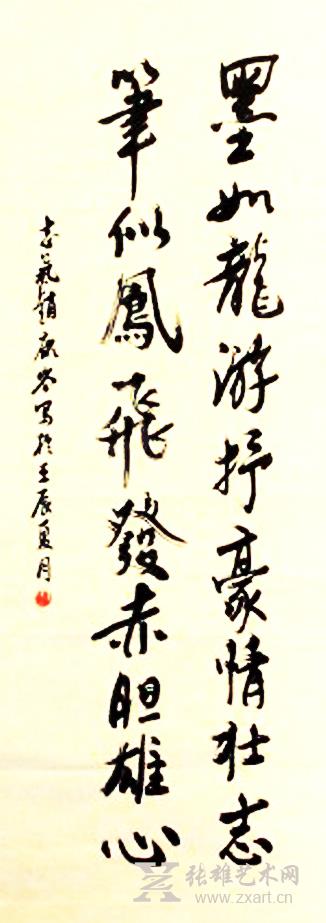 墨如龍游抒豪情壮志
筆似鳳飛發赤胆雄心
写於壬辰夏月
张雄艺术网
www.zxart.cn